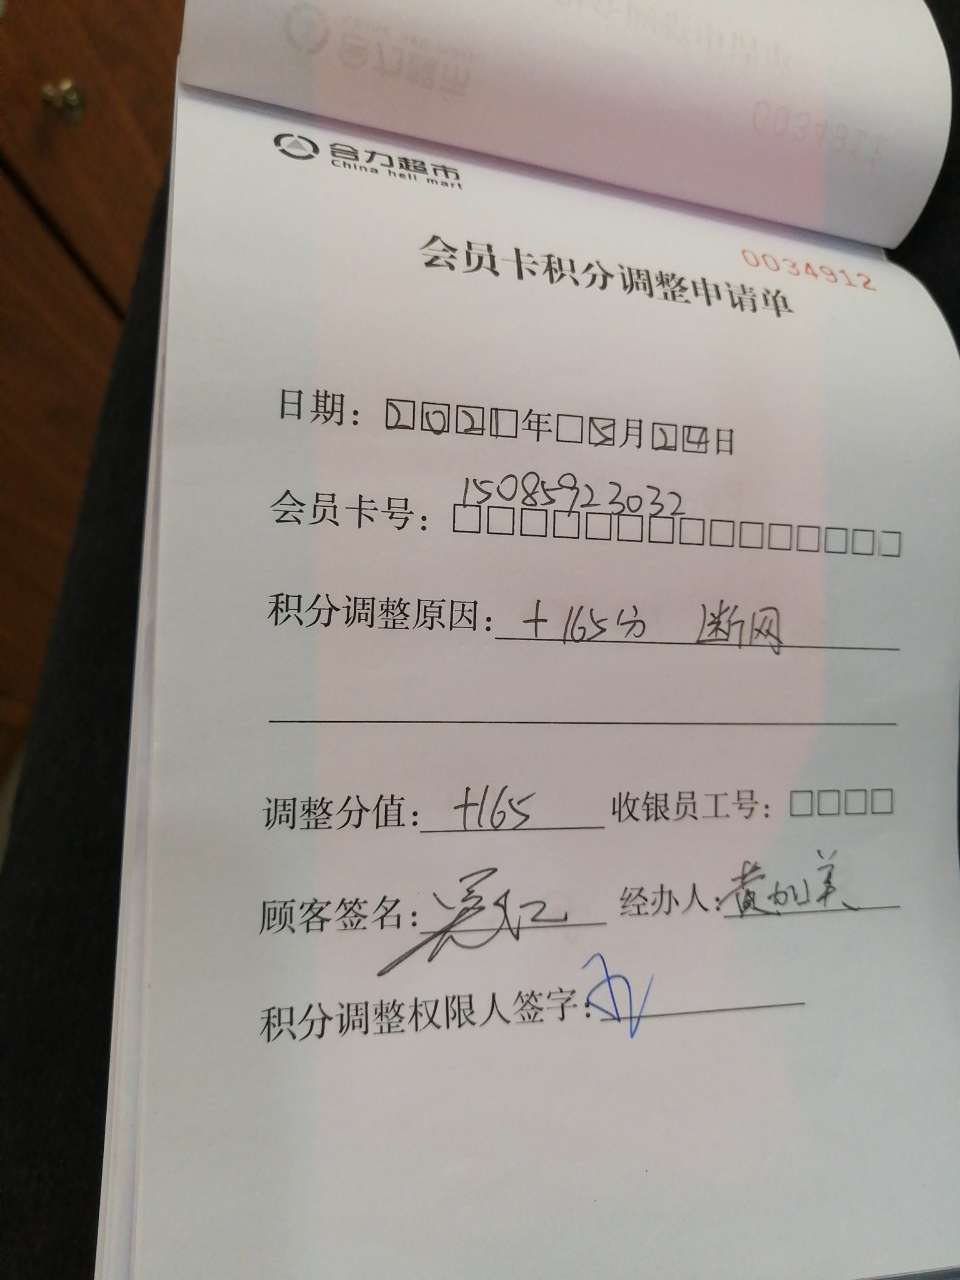 合力超市
China heli mart
0034912
会员卡积分调整申请单
日期：2021年□5月24日
会员卡号：15085923032
积分调整原因：+165分 断网
调整分值：+165 收银员工号：□□□□
顾客签名： 经办人：黄旭美
积分调整权限人签字：